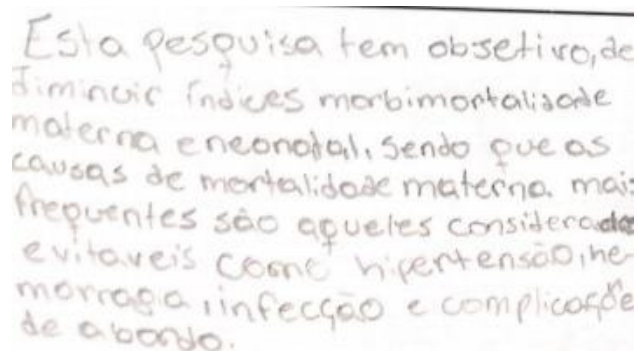 Esta pesquisa tem objetivo, de
diminuir índices morbimortalidade
materna e neonatal, sendo que as
causas de mortalidade materna mais
frequentes são aqueles considerados
evitaveis como hipertensão, he-
morragia, infecção e complicações
de abordo.